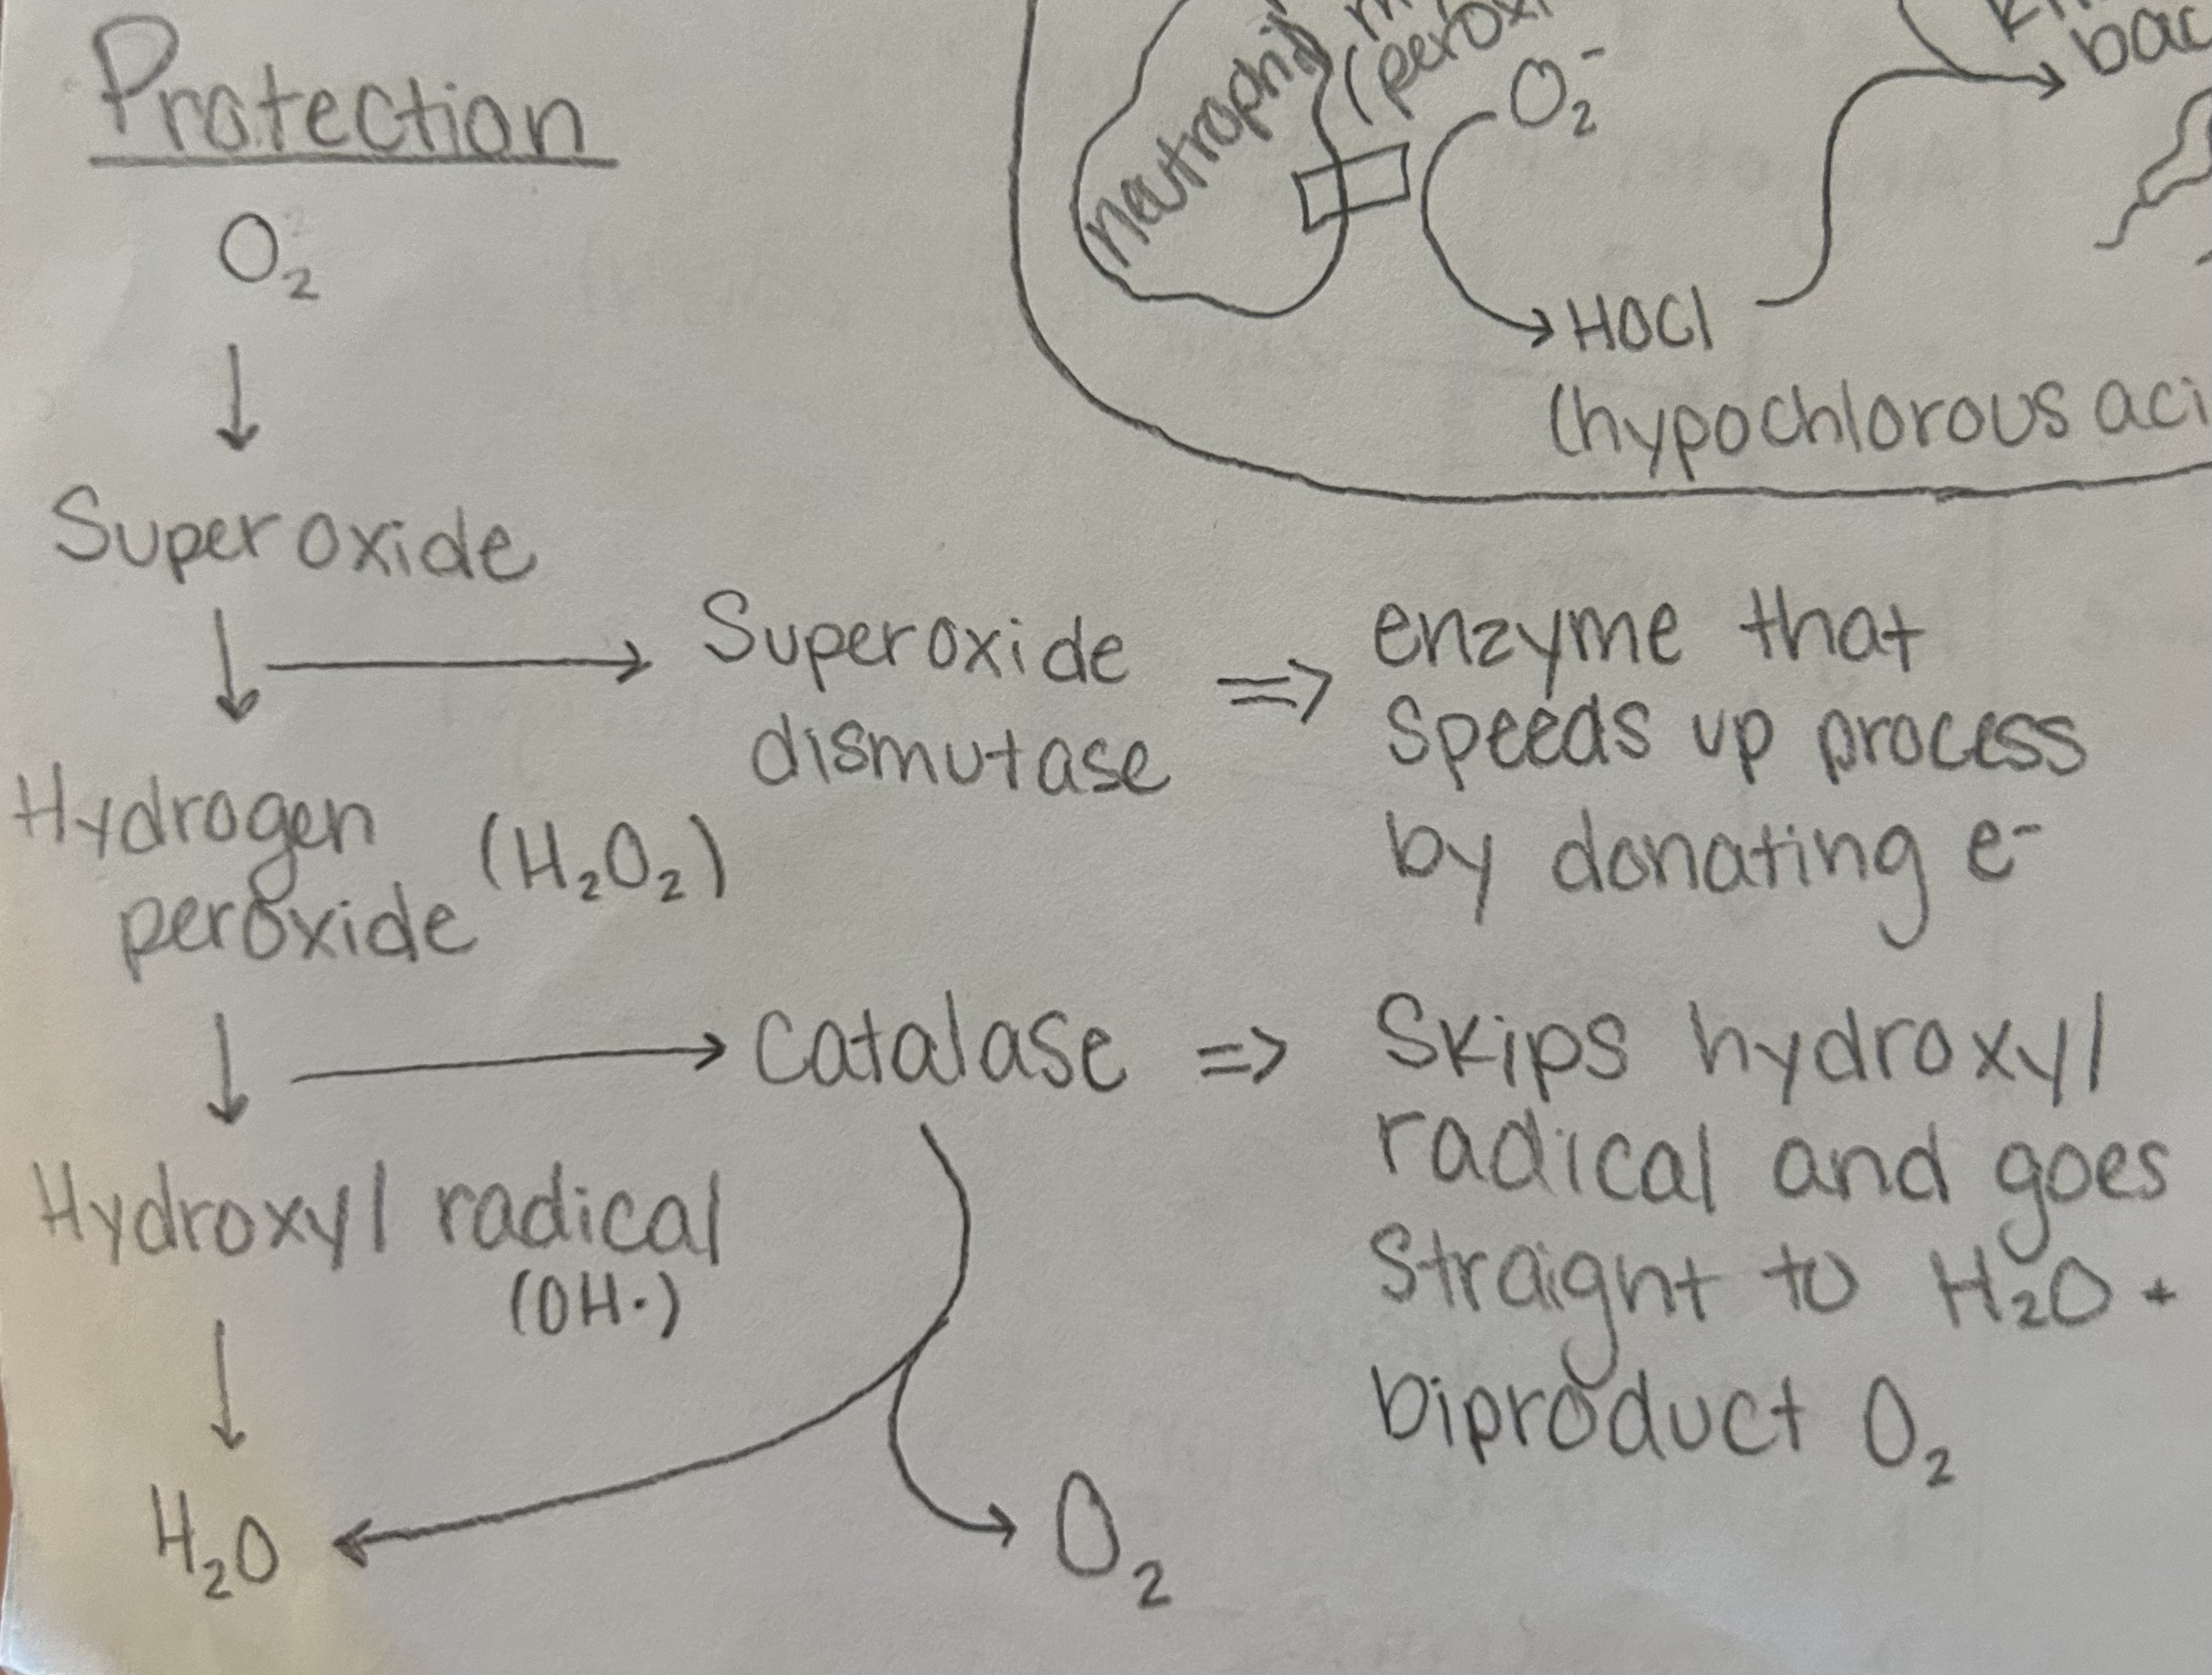 Protection
O₂
Superoxide
Superoxide
dismutase
=> enzyme that
speeds up process
by donating e⁻
Hydrogen
peroxide
(H₂O₂)
Catalase => Skips hydroxyl
radical and goes
straight to H₂O +
biproduct O₂
Hydroxyl radical
(OH·)
H₂O
O₂
neutrophil
O₂⁻
HOCl
(hypochlorous aci